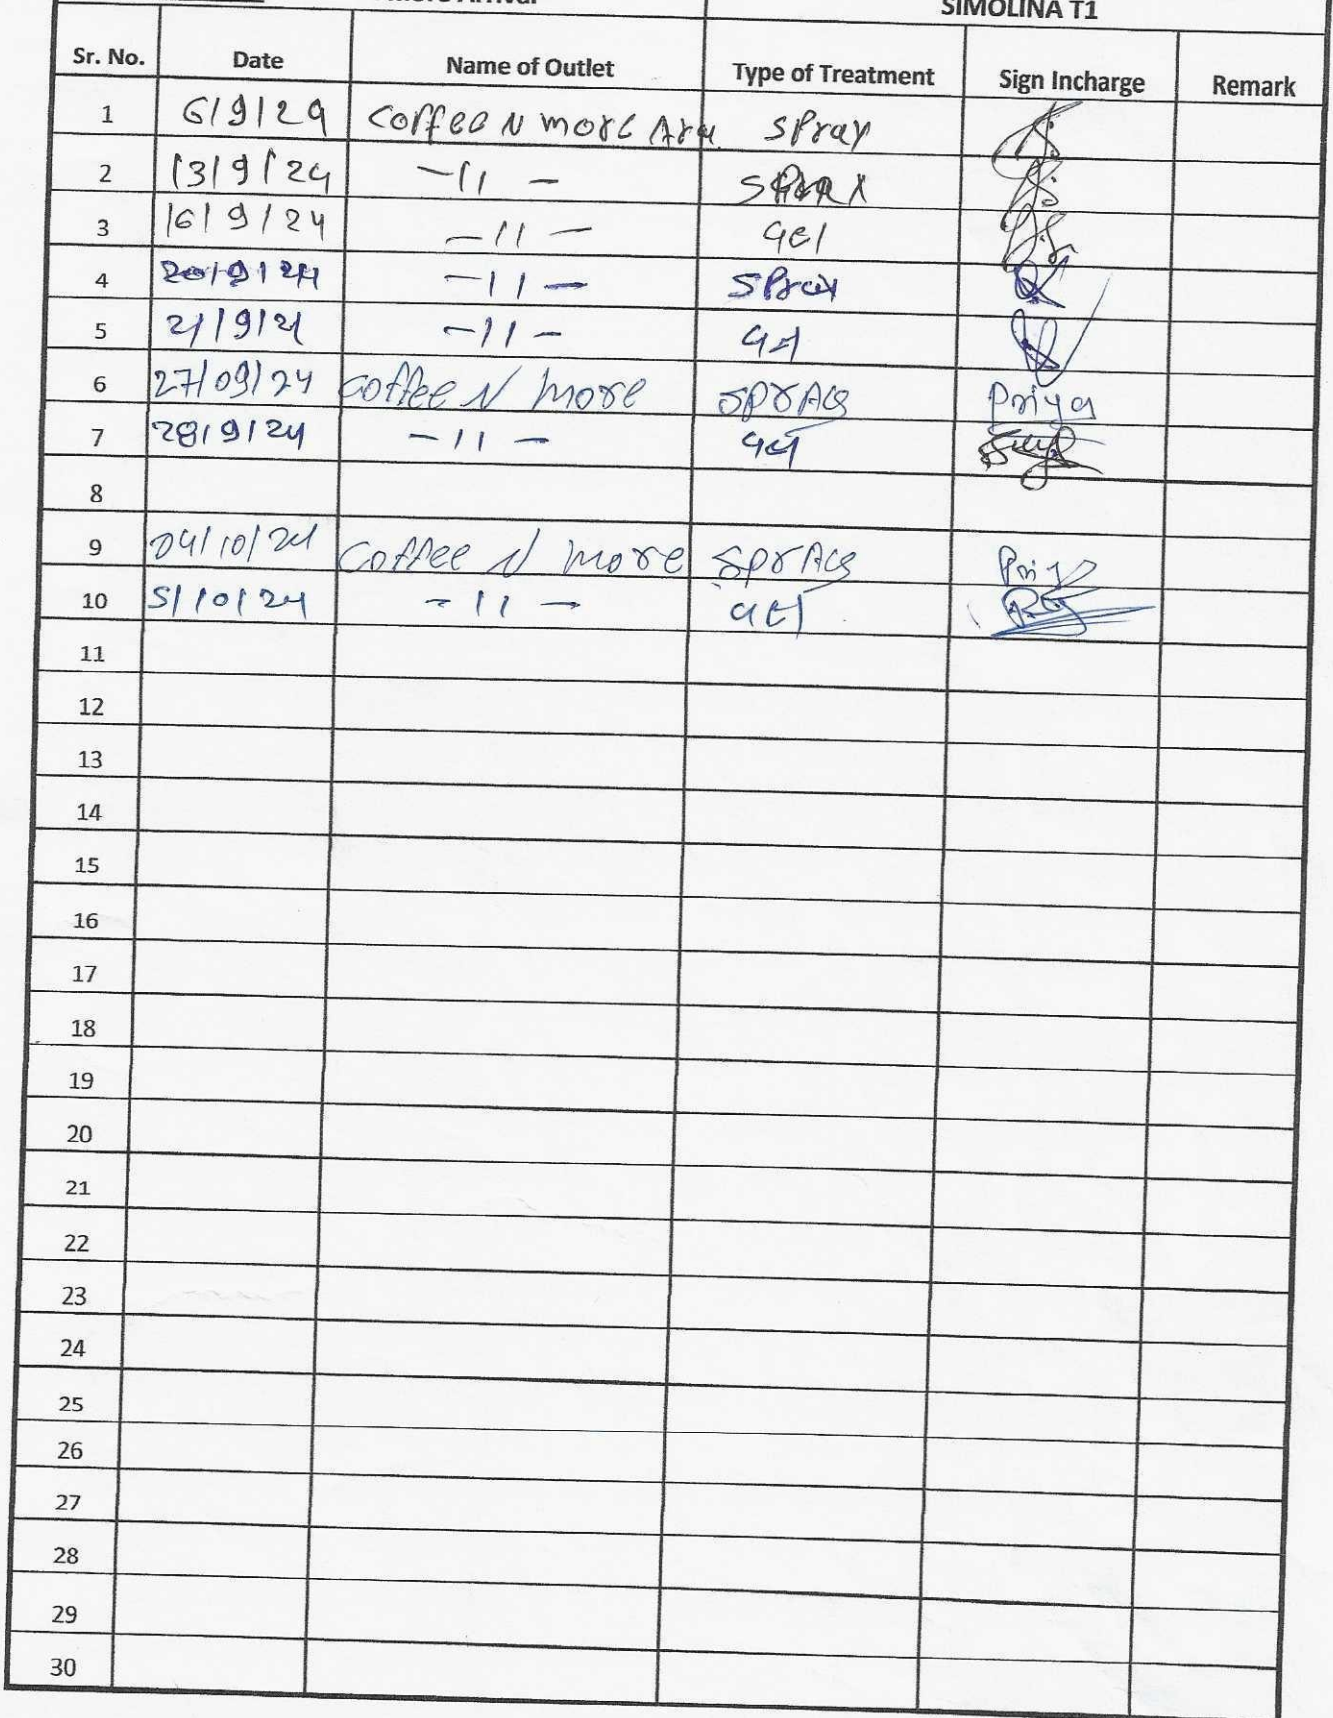 SIMOLINA T1
Sr. No. Date Name of Outlet Type of Treatment Sign Incharge Remark
1 6/9/24 Coffee N more Spray
2 13/9/24 -11-
3 16/9/24 -11- Gel
4 20/9/24 -11- Spray
5 21/9/24 -11- Gel
6 27/09/24 Coffee N more Spray Priya
7 28/9/24 -11- Gel
8
9 04/10/24 Coffee N more Spray Priya
10 5/10/24 -11- Gel
11
12
13
14
15
16
17
18
19
20
21
22
23
24
25
26
27
28
29
30